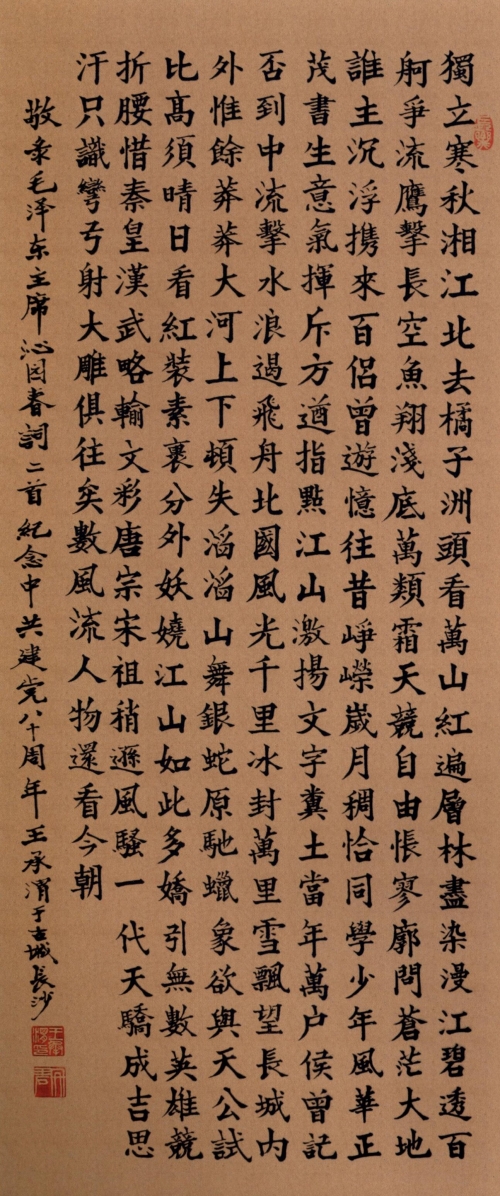 獨立寒秋湘江北去橘子洲頭看萬山紅遍層林盡染漫江碧透百
舸爭流鷹擊長空魚翔淺底萬類霜天競自由悵寥廓問蒼茫大地
誰主沉浮携來百侶曾遊憶往昔崢嶸歲月稠恰同學少年風華正
茂書生意氣揮斥方遒指點江山激揚文字糞土當年萬户侯曾記
否到中流擊水浪遏飛舟北國風光千里冰封萬里雪飄望長城内
外惟餘莽莽大河上下頓失滔滔山舞銀蛇原馳蠟象欲與天公試
比髙須晴日看紅裝素裹分外妖嬈江山如此多嬌引無數英雄競
折腰惜秦皇漢武略輸文彩唐宗宋祖稍遜風騷一代天驕成吉思
汗只識彎弓射大雕俱往矣數風流人物還看今朝
敬录毛泽东主席沁园春詞二首纪念中共建党八十周年王承渭于古城長沙